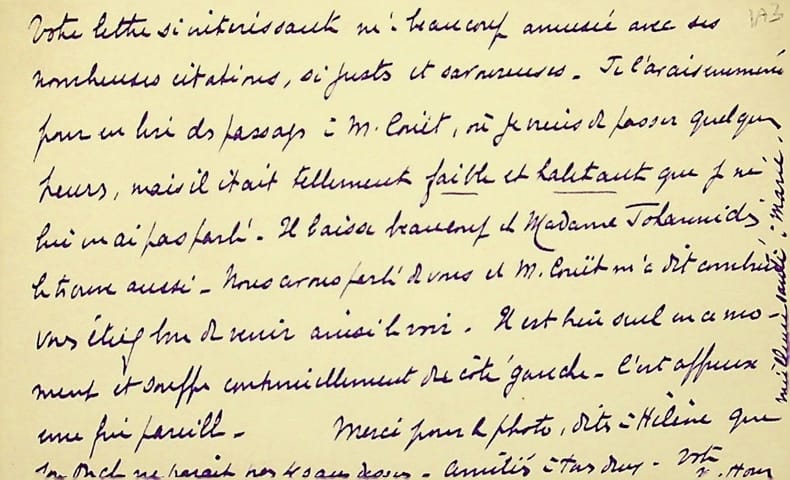 Votre lettre si intéressante m'a beaucoup amusée avec ses
nombreuses citations, si justes et savoureuses - Je l'avais emmené
pour en lire des passages à M. Couët, où je viens de passer quelques
heures, mais il était tellement faible et haletant que je ne
lui en ai pas parlé - Il baisse beaucoup et Madame Johannidès
le trouve aussi - Nous avons parlé de vous et M. Couët m'a dit combien
vous étiez bon de venir ainsi le voir - Il est bien seul en ce mo-
ment et souffre continuellement du côté gauche - C'est affreux
une fin pareille - Merci pour la photo, dites à Hélène que
son oncle ne paraît pas ans dessus - Amitiés à tous deux - Votre
meilleure santé à Marie.